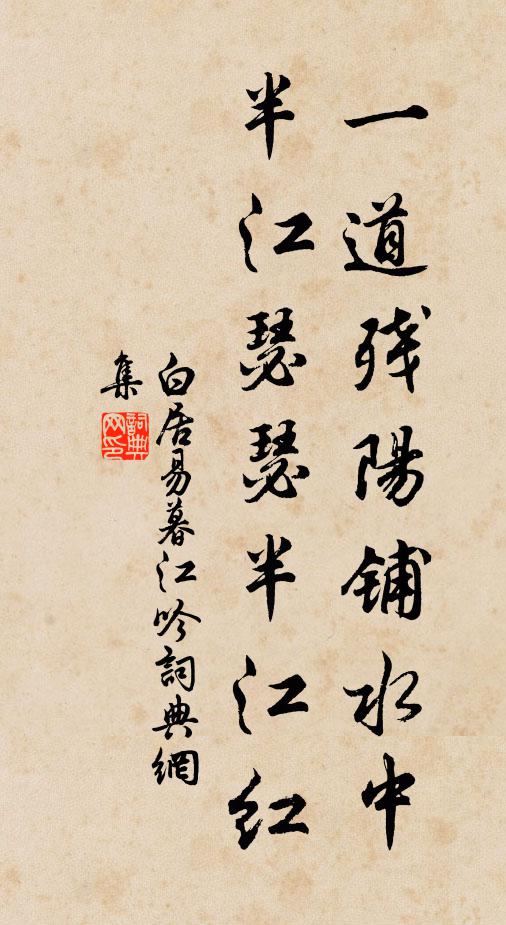 一道残陽铺水中
半江瑟瑟半江红
白居易暮江吟詞典網
集
詞典
网印